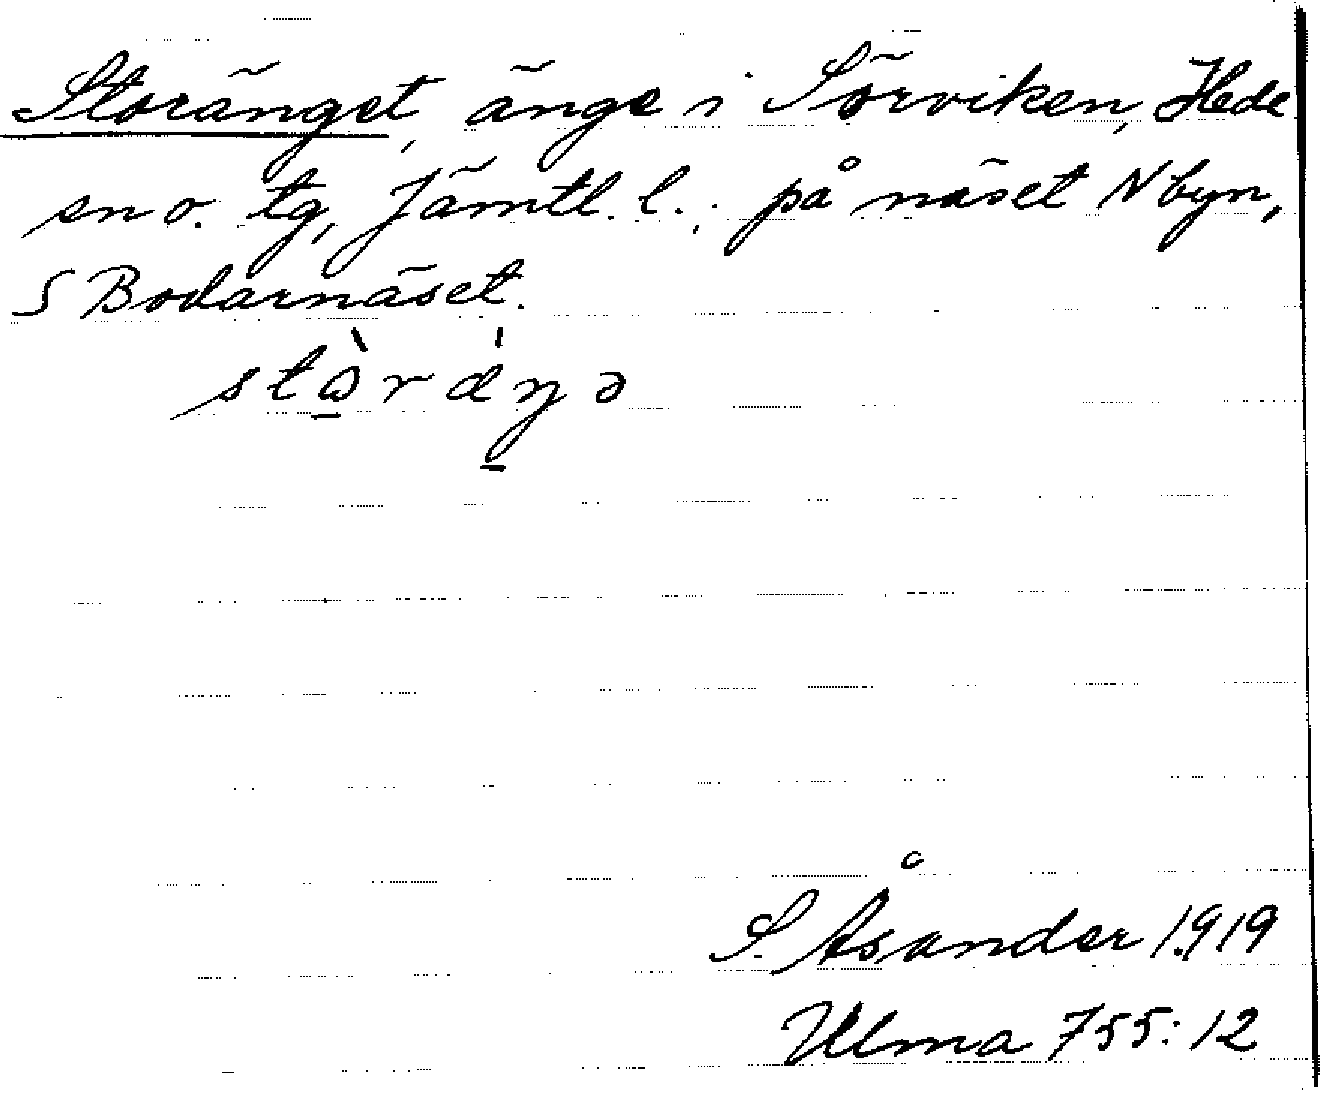 Storänget, änge i Sörviken, Hede
sn o. tg, Jämtl. l., på näset N byn,
S Bodarnäset.
S. Åsander 1919
Ulma 755:12